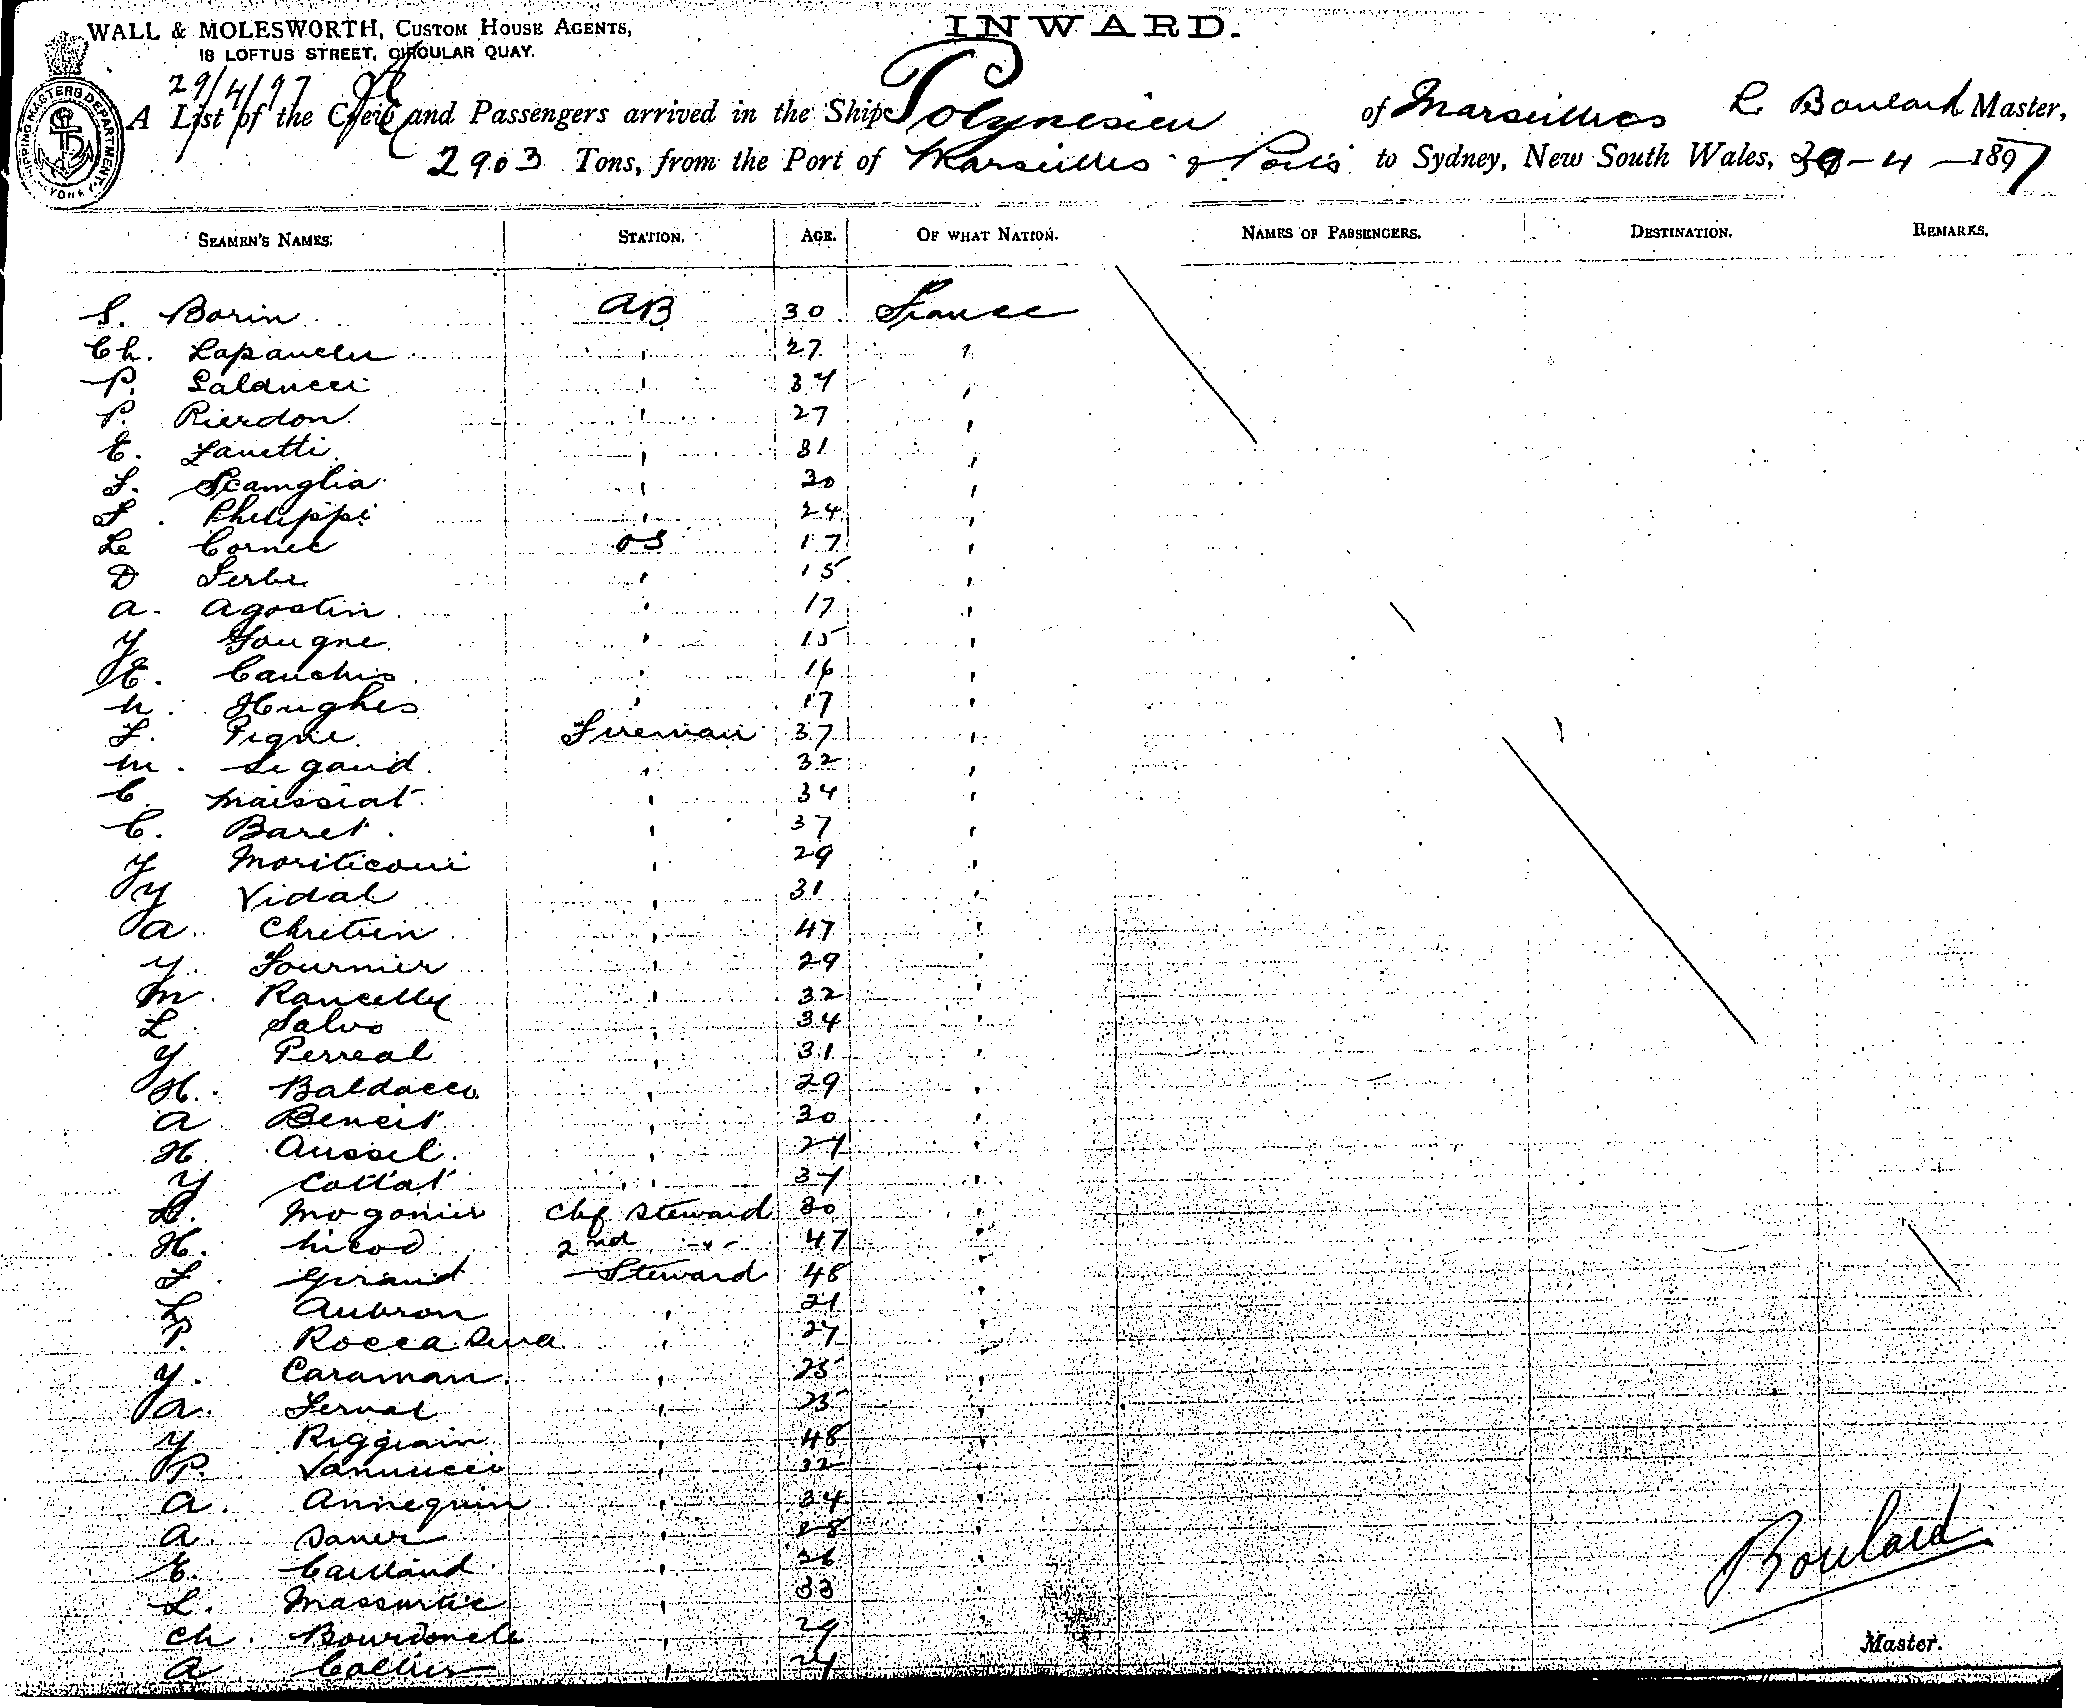 WALL & MOLESWORTH, CUSTOM HOUSE AGENTS,
18 LOFTUS STREET, CIRCULAR QUAY.
INWARD.
29/4/97
SHIPPING MASTERS DEPARTMENT
A List of the Crew and Passengers arrived in the Ship Polynesien of Marseilles R Boulard Master,
2903 Tons, from the Port of Marseilles & Ports to Sydney, New South Wales, 30-4-1897
SEAMEN'S NAMES. STATION. AGE. OF WHAT NATION. NAMES OF PASSENGERS. DESTINATION. REMARKS.
S. Borin AB 30 France
Ch. 27 "
P. 34 "
P. Rierdon 27 "
E. Zanetti 31 "
F. Scamglia 30 "
F. Philippi 24 "
Le Cornec OS 17 "
D 15 "
A. Agostin 17 "
Y Gougne 15 "
E. Cauchis 16 "
N. Hughes 17 "
F. Pigne Fireman 37 "
M. Sigaud 32 "
C. Maissiat 34 "
C. Baret 37 "
Y Moriticoni 29 "
Y Vidal 31 "
A. Chretien 47 "
Y. Fournier 29 "
M. Rancelly 32 "
L Salvo 34 "
Y Perreal 31 "
H. Baldacco 29 "
A Beneit 30 "
H. Aussel 24 "
Y Collat 34 "
D. Mogonier Chf Steward 30 "
H. Nicod 2nd -"- 47 "
F. Geraud Steward 48 "
L Aubron 21 "
P. Rocca 24 "
Y. Caraman 25 "
A. 25 "
Y 48 "
P. Vannucci 32 "
A. Annequin 34 "
A. 28 "
E. Cailland 26 "
L. 33 "
Ch. 29 "
A 24
Boulard
Master.